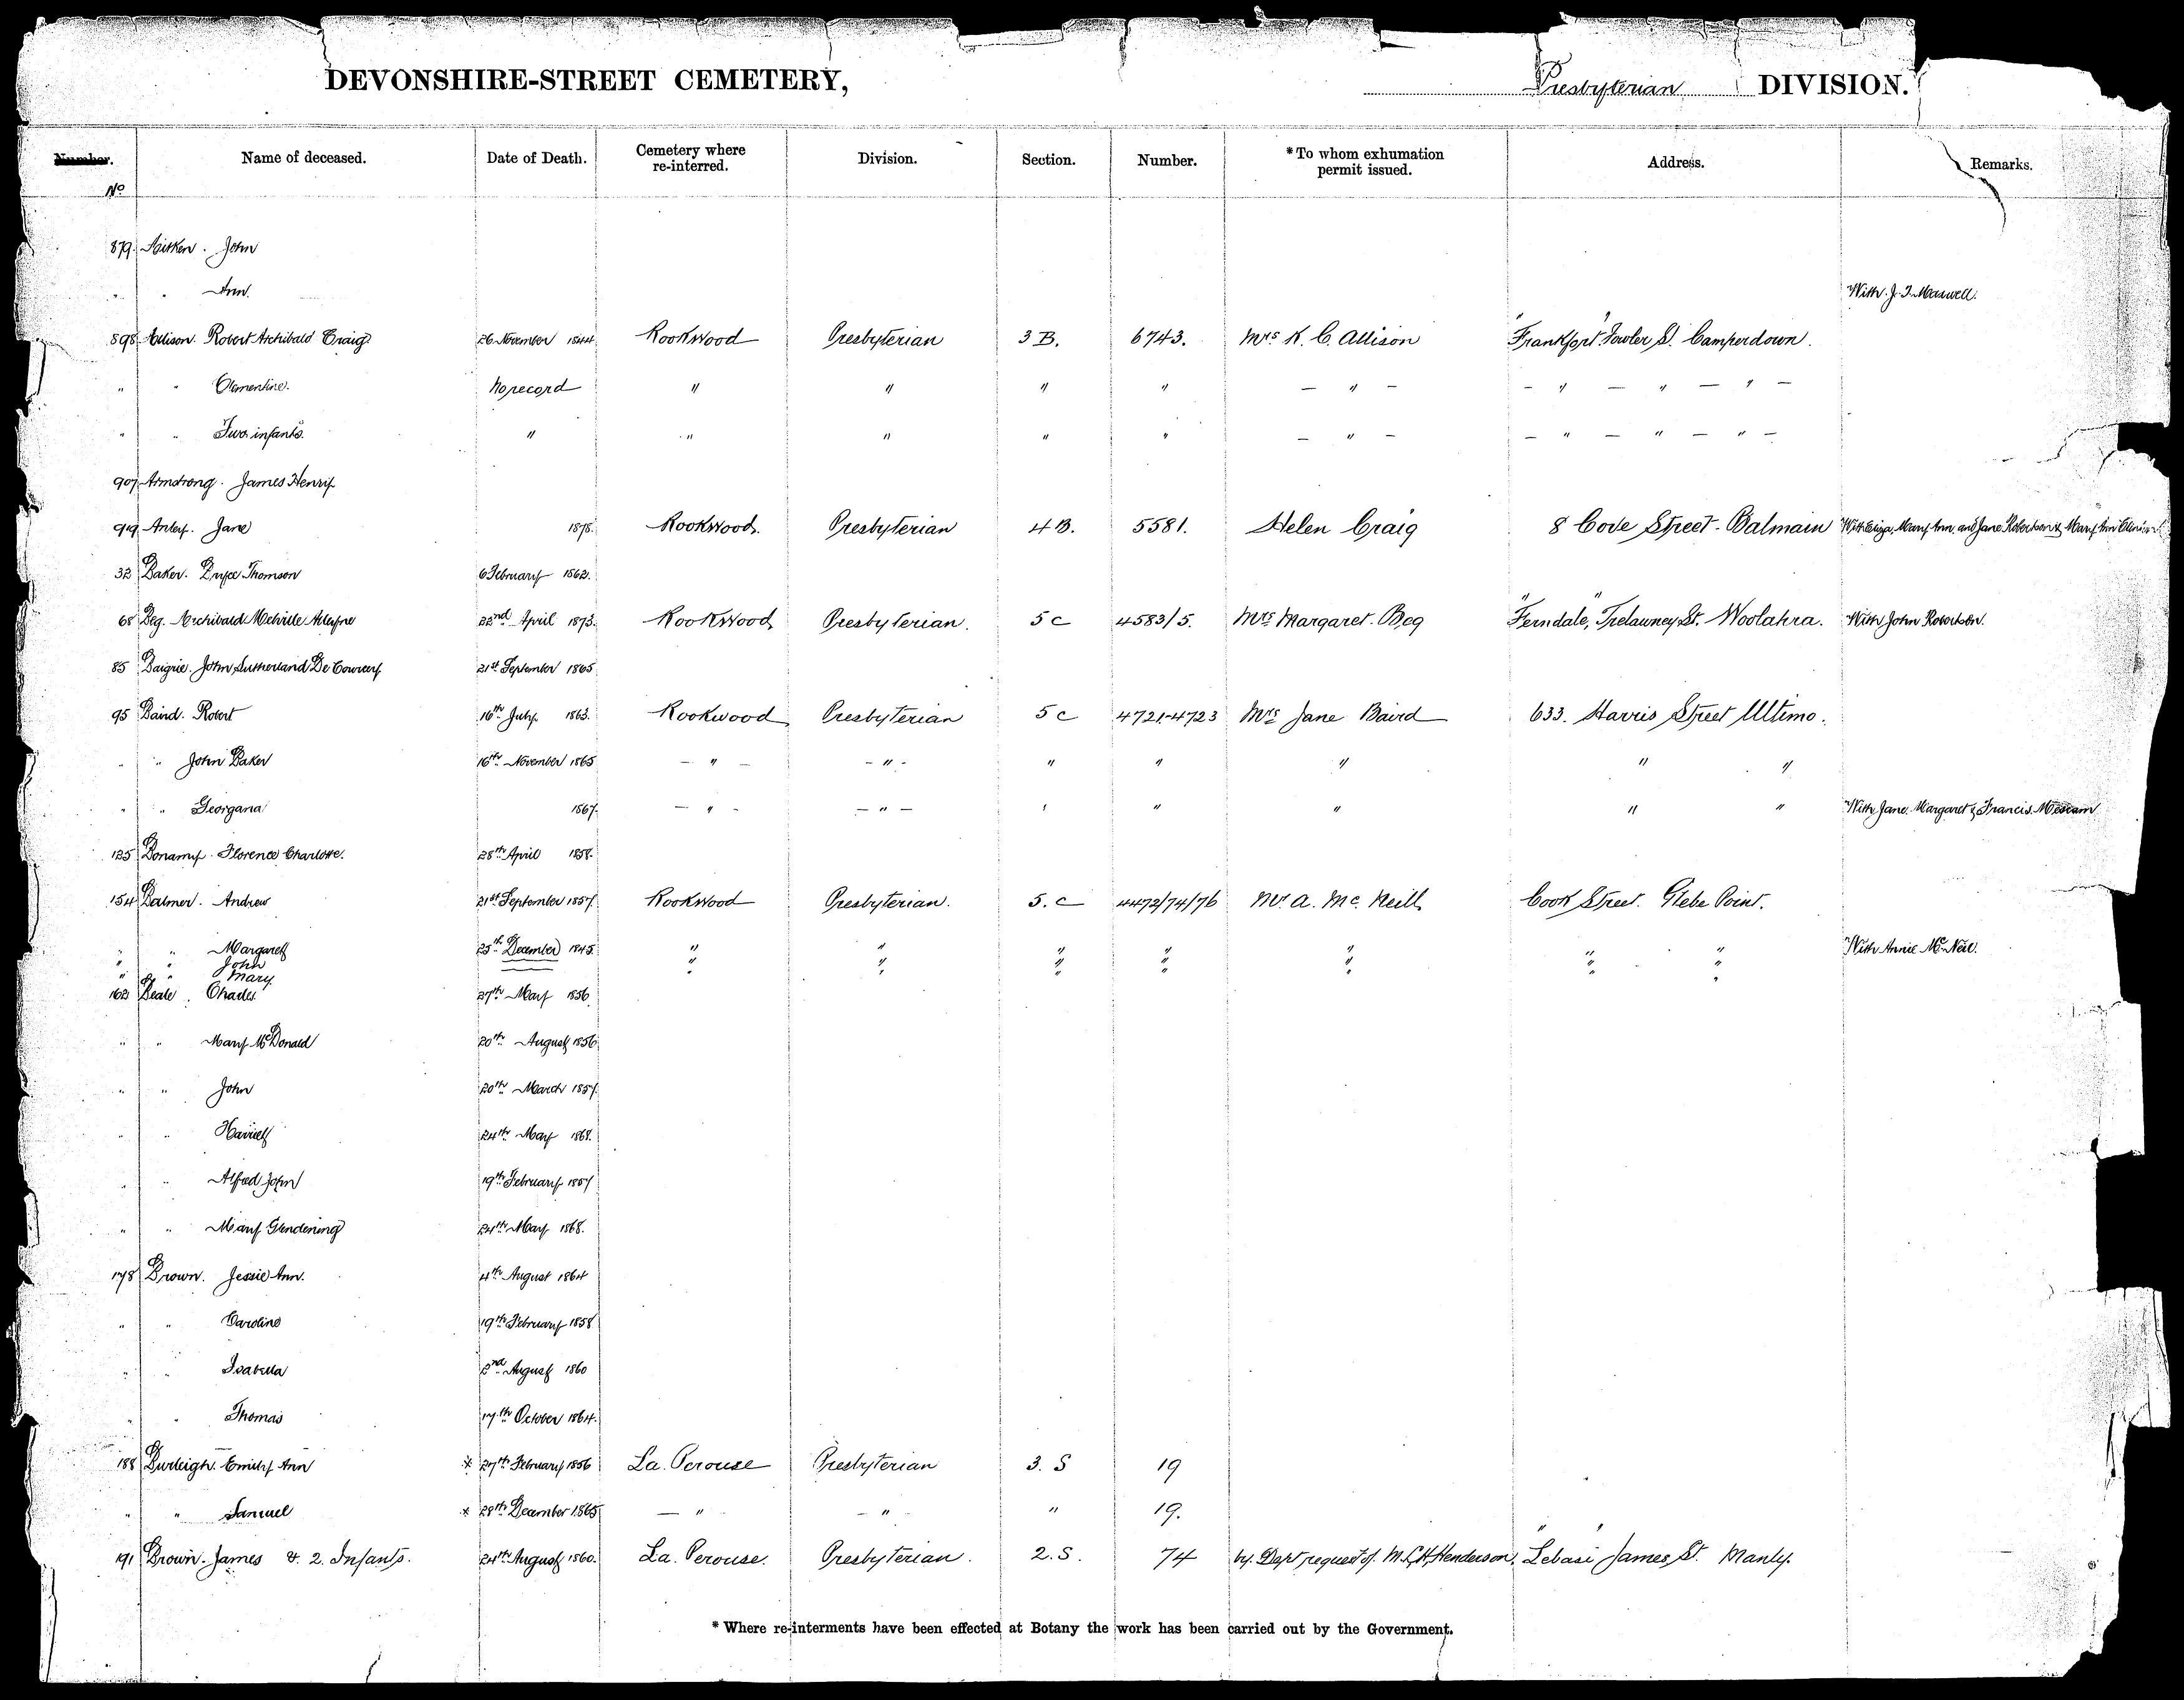 DEVONSHIRE-STREET CEMETERY, Presbyterian DIVISION.
Number. Name of deceased. Date of Death. Cemetery where re-interred. Division. Section. Number. *To whom exhumation permit issued. Address. Remarks.
No
879. Aitken. John
" " Ann. With J. T. Maxwell.
898 Allison. Robert Archibald Craig 26 November 1844 Rookwood Presbyterian 3 B. 6743. Mrs K. C. Allison "Frankfort" Fowler St. Camperdown.
" " Clementine. No record " " " " — " — — " — " — " —
" " Two infants. " " " " " — " — — " — " — " —
907 Armstrong. James Henry
919 Arley. Jane 1878. Rookwood. Presbyterian 4 B. 5581. Helen Craig 8 Cove Street - Balmain With Eliza, Mary Ann, and Jane Robertson & Mary Ann
32 Baker. Thomson 6 February 1862.
68 Beg. Archibald Melville Alleyne 22nd April 1873. Rookwood Presbyterian. 5 C 4583/5. Mrs Margaret Beg "Ferndale", Trelawney St. Woolahra. With John Robertson.
85 Baigrie. John Sutherland De Courcey 21st September 1865
95 Baird. Robert 16th July 1863. Rookwood Presbyterian 5 C 4721-4723 Mrs Jane Baird 633. Harris Street Ultimo.
" " John Baker 16th November 1865 — " — — " — " " " " "
" " Georgana 1867. — " — — " — " " " " " With Jane. Margaret & Francis
125 Bonamy. Florence Charlotte. 28th April 1858.
154 Balmer. Andrew 21st September 1857 Rookwood Presbyterian. 5. C 4472/74/76 Mr. A. Mc. Neill Cook Street. Glebe Point.
" " Margaret 25th December 1845. " " " " " " " With Annie McNeil.
" " John " " " " " " "
" " Mary " " " " " " "
162 Beale. Charles 27th May 1856
" " Mary McDonald 20th August 1856
" " John 20th March 1857
" " Harriet 24th May 1868.
" " Alfred John 19th February 1857
" " Mary Glendening 24th May 1868.
178 Brown. Jessie Ann. 4th August 1864
" " Caroline 19th February 1858
" " Isabella 2nd August 1860
" " Thomas 17th October 1864.
188 Burleigh. Emily Ann * 27th February 1856 La. Perouse Presbyterian 3. S 19
" " Samuel * 28th December 1865 — " — " — " 19.
191 Brown. James & 2. Infants. 24th August 1860. La. Perouse. Presbyterian. 2. S. 74 by. Dept request of. Henderson. "Lebasi" James St. Manly.
* Where re-interments have been effected at Botany the work has been carried out by the Government.